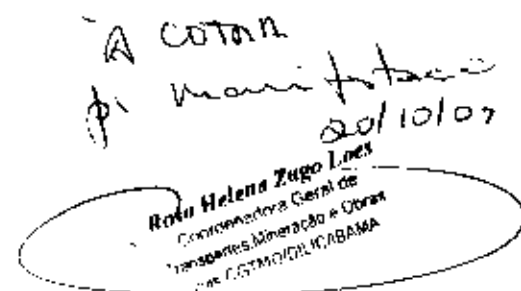 À COTRA
p/ manifestação
20/10/07
Rosa Helena Zago Loes
Coordenadora Geral de
Transportes, Mineração e Obras
CGTMO/DILIC/IBAMA